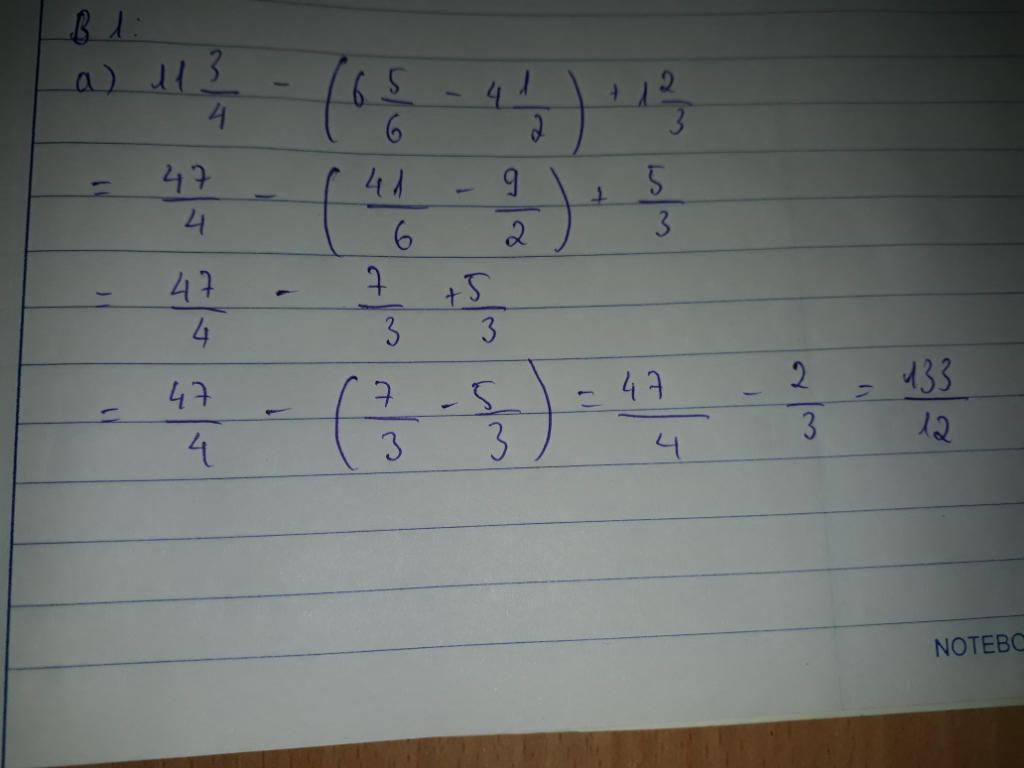 B 1:
a) 11 3/4 - (6 5/6 - 4 1/2) + 1 2/3
= 47/4 - (41/6 - 9/2) + 5/3
= 47/4 - 7/3 + 5/3
= 47/4 - (7/3 - 5/3) = 47/4 - 2/3 = 133/12
NOTEBO